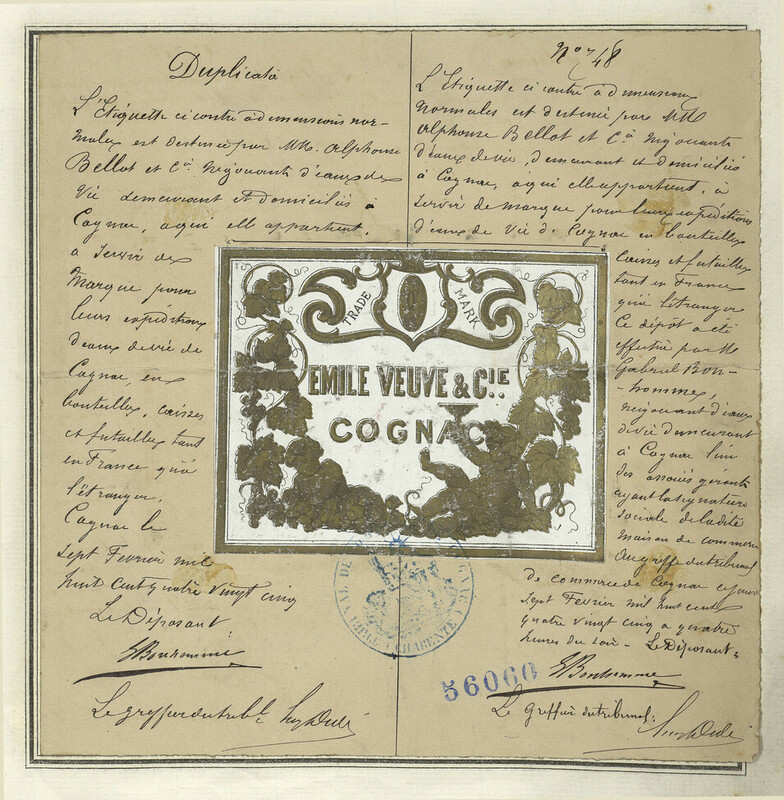 Duplicata
L'Etiquette ci contre à dimensions nor-
males est destinée par MM. Alphonse
Bellot et Cie Négociants d'eaux de
Vie demeurant et domiciliés à
Cognac, à qui elle appartient,
à servir de
Marque pour
leurs expéditions
d'eaux de vie de
Cognac, en
bouteilles, caisses
et futailles tant
en France qu'à
l'étranger.
Cognac le
Sept Février mil
huit cent quatre vingt cinq
Le Déposant
G Bonhomme
Le greffier du tribal
No 748
L'Etiquette ci contre à dimensions
Normales est destinée par MM
Alphonse Bellot et Cie Négociants
d'eaux de vie, demeurant et domiciliés
à Cognac, à qui elle appartient, à
servir de marque pour leurs expéditions
d'eaux de Vie de Cognac en bouteilles
caisses et futailles
tant en France
qu'à l'étranger
Ce dépôt a été
effectué par M
Gabriel Bon-
-homme,
négociant d'eaux
de vie demeurant
à Cognac l'un
des associés gérants
ayant la signature
sociale de ladite
maison de commerce
Au greffe du tribunal
de commerce de Cognac ce jour
sept Février mil huit cent
quatre vingt cinq à quatre
heures du soir - Le Déposant
G Bonhomme
Le Greffier du tribunal
TRADE MARK
EMILE VEUVE & CIE.
COGNAC
CHARENTE
56060